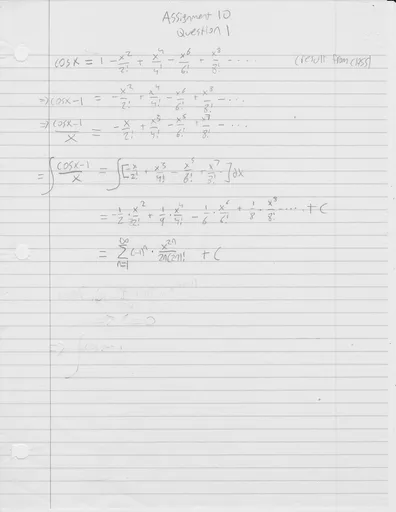 Assignment 10
Question 1
cosx = 1 - x²/2! + x⁴/4! - x⁶/6! + x⁸/8! - .... (result from class)
=> cosx-1 = -x²/2! + x⁴/4! - x⁶/6! + x⁸/8! - ...
=> cosx-1/x = -x/2! + x³/4! - x⁵/6! + x⁷/8! - ...
= ∫ cosx-1/x = ∫[-x/2! + x³/4! - x⁵/6! + x⁷/8!]dx
= -1/2 · x²/2! + 1/4 · x⁴/4! - 1/6 · x⁶/6! + 1/8 · x⁸/8! - .... + C
= ∞ Σ n=1 (-1)ⁿ · x²ⁿ/2n(2n)! + C